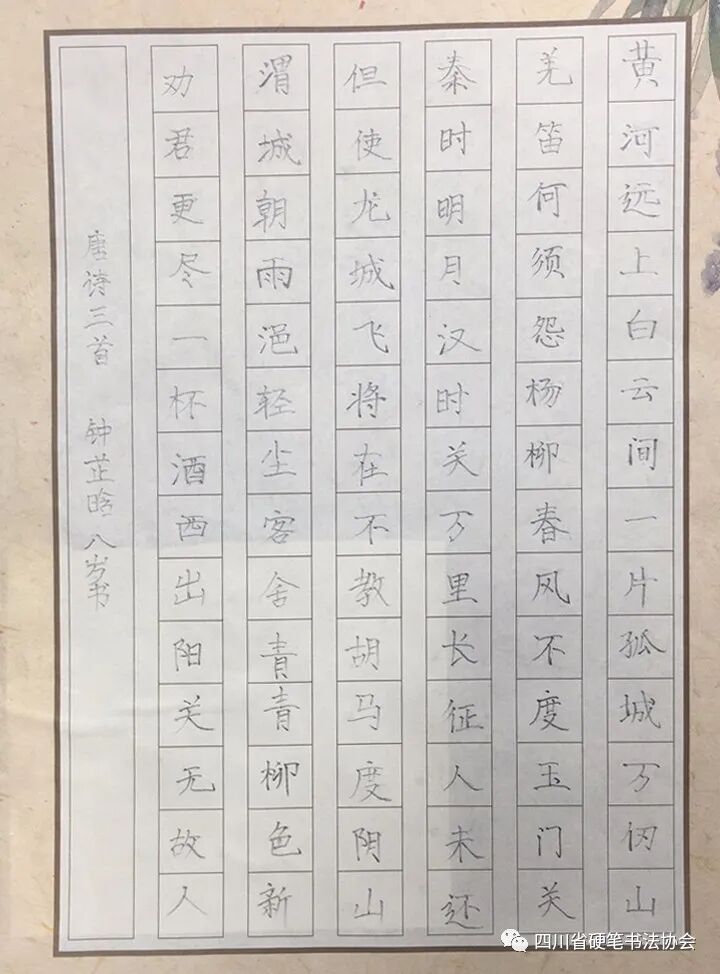 黄河远上白云间一片孤城万仞山
羌笛何须怨杨柳春风不度玉门关
秦时明月汉时关万里长征人未还
但使龙城飞将在不教胡马度阴山
渭城朝雨浥轻尘客舍青青柳色新
劝君更尽一杯酒西出阳关无故人
唐诗三首 钟芷晗八岁书
四川省硬笔书法协会